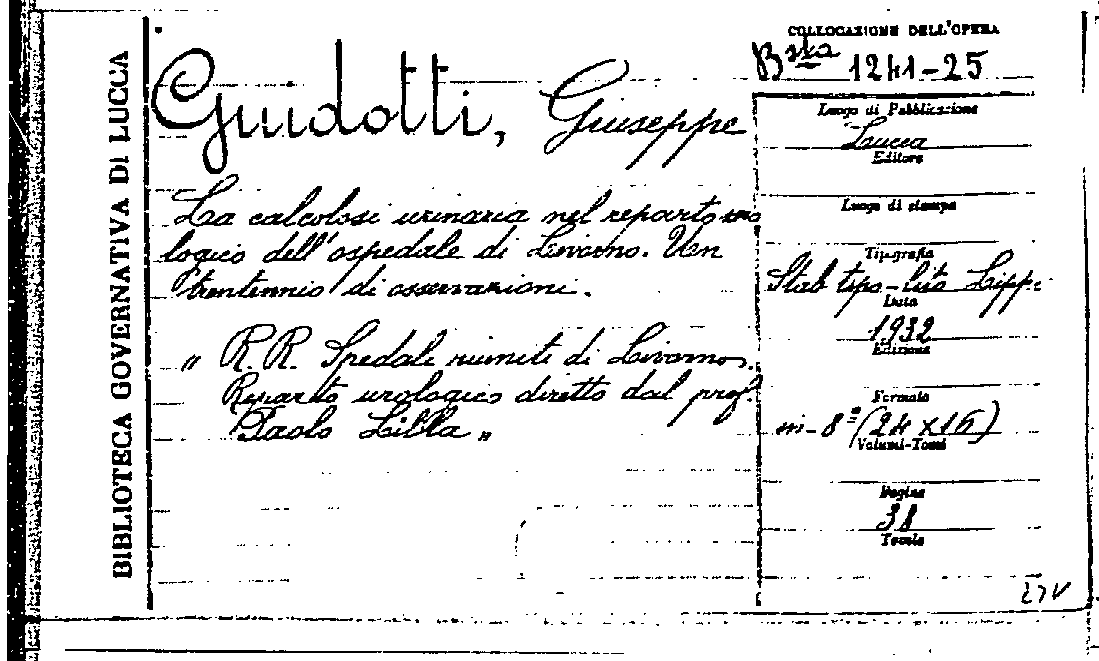 BIBLIOTECA GOVERNATIVA DI LUCCA
Guidotti, Giuseppe
La calcolosi urinaria nel reparto uro
logico dell'ospedale di Livorno. Un
trentennio di osservazioni.
„ R. R. Spedali riuniti di Livorno.
Reparto urologico diretto dal prof.
Paolo Lilla „
COLLOCAZIONE DELL'OPERA
Bsta 1241-25
Luogo di Pubblicazione
Lucca
Editore
Luogo di stampa
Tipografia
Stab tipo-lito Lippi
Data
1932
Edizione
Formato
in-8° (24 x 16)
Volumi-Tomi
Pagine
38
Tavole